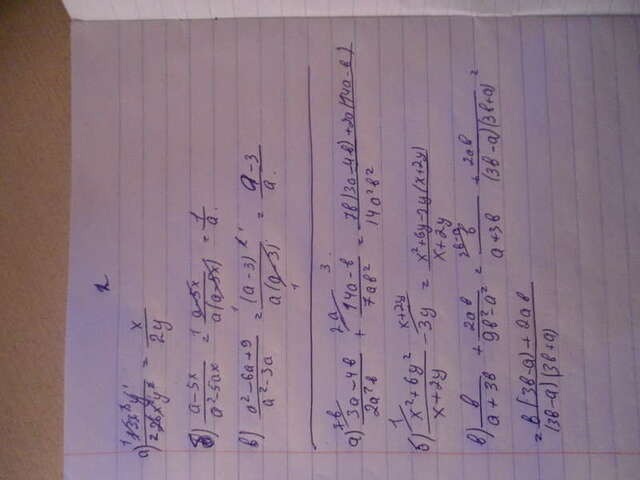 2
а) 13x³y¹/26x²y² = x/2y
б) a-5x/a²-5ax = a-5x/a(a-5x) = 1/a.
в) a²-6a+9/a²-3a = (a-3)²/a(a-3) = a-3/a.
3.
а) 3a-4b/2a²b + 14a-b/7ab² = 7b(3a-4b)+2a(14a-b)/14a²b²
б) x²+6y²/x+2y - 3y = x²+6y-3y(x+2y)/x+2y
в) b/a+3b + 2ab/9b²-a² = b/a+3b + 2ab/(3b-a)(3b+a) =
= b(3b-a)+2ab/(3b-a)(3b+a)